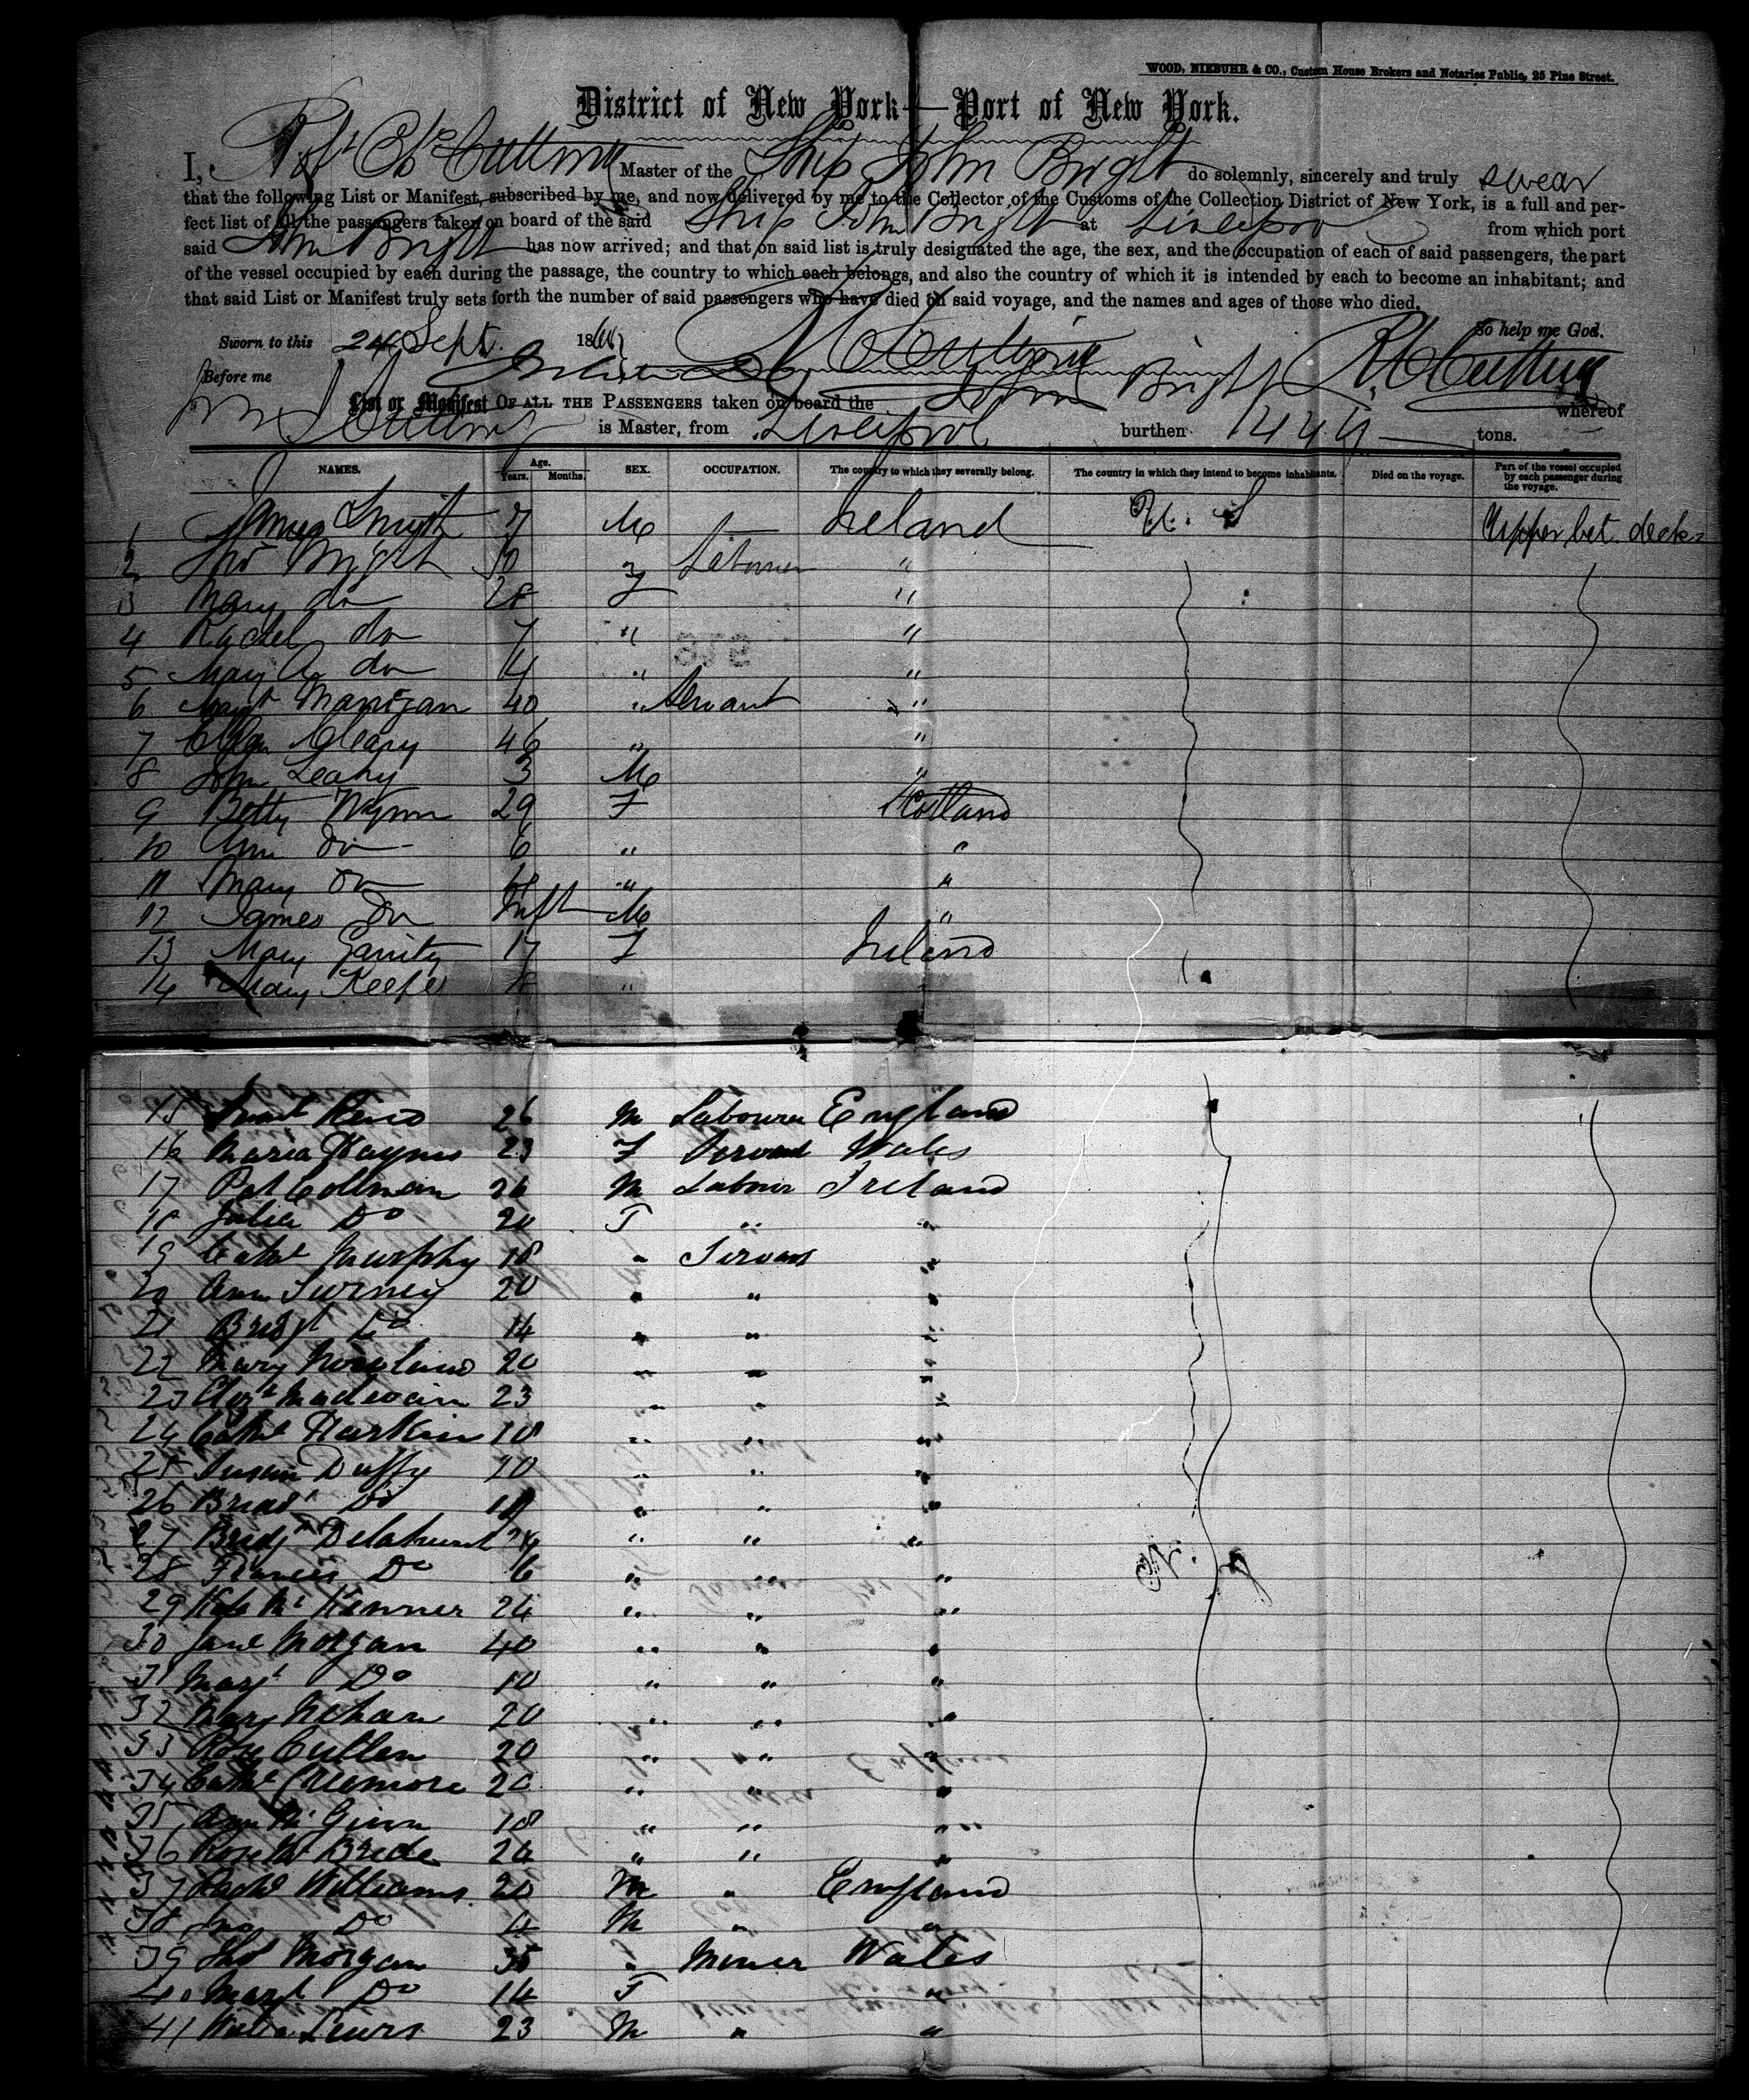 WOOD, NIEBUHR & CO., Custom House Brokers and Notaries Public, 25 Pine Street.
District of New York—Port of New York.
I, Robt Cutting Master of the Ship John Bright do solemnly, sincerely and truly swear
that the following List or Manifest, subscribed by me, and now delivered by me to the Collector of the Customs of the Collection District of New York, is a full and per-
fect list of all the passengers taken on board of the said Ship John Bright at Liverpool from which port
said John Bright has now arrived; and that on said list is truly designated the age, the sex, and the occupation of each of said passengers, the part
of the vessel occupied by each during the passage, the country to which each belongs, and also the country of which it is intended by each to become an inhabitant; and
that said List or Manifest truly sets forth the number of said passengers who have died on said voyage, and the names and ages of those who died.
So help me God.
Sworn to this 24 Sept. 186
Before me
List or Manifest OF ALL THE PASSENGERS taken on board the John Bright whereof
R Cutting is Master, from Liverpool burthen 1444 tons.
NAMES. Age. Years. Months. SEX. OCCUPATION. The country to which they severally belong. The country in which they intend to become inhabitants. Died on the voyage. Part of the vessel occupied by each passenger during the voyage.
1 James Smith 7 M — Ireland U. S Upper bet. decks
2 Tho Bright 30 " Labourer "
3 Mary do 28 F "
4 Rachel do 7 " "
5 Mary A do 4 " "
6 Margt Manigan 40 " Servant "
7 Ellen Cleary 46 " "
8 John Leahy 3 M "
9 Betty Wynn 29 F Scotland
10 Ann Do 6 " "
11 Mary Do 4 " "
12 James Do Inft M "
13 Mary Garrity 17 F Ireland
14 Mary Keefe 18 "
15 26 M Labourer England
16 Maria Haynes 23 F Servant Wales
17 Pat Collman 26 M Labour Ireland
18 Julia Do 20 F " "
19 Cathe Murphy 18 " Servant "
20 Ann Surney 20 " " "
21 Bridgt Do 14 " " "
22 Mary 20 " " "
23 23 " " "
24 Cathe Harkin 18 " " "
25 Susan Duffy 20 " " "
26 Bridt Do 18 " " "
27 Bridj Delahunt 24 " " "
28 Francis Do 6 " " "
29 Kate Mc Kenner 24 " " "
30 Jane Morgan 40 " " "
31 Margt Do 10 " " "
32 Mary Nehan 20 " " "
33 Rose Cullen 20 " " "
34 Cathe Cremore 20 " " "
35 Ann Mc Givn 18 " " "
36 Rose Mc Bride 24 " " "
37 Rachl Williams 20 M " England
38 Jno Do 4 M " "
39 Tho Morgan 35 " Miner Wales
40 Margt Do 14 F "
41 Willm Lewis 23 M " "